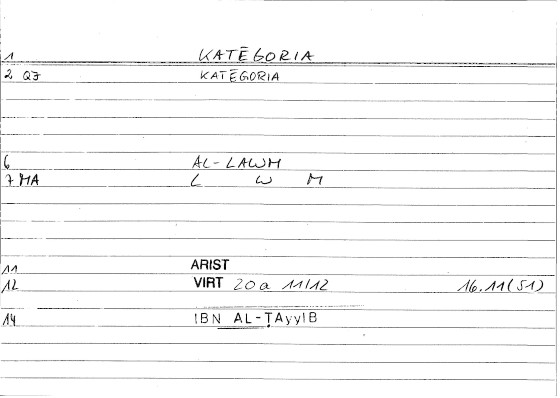 1 KATĒGORIA
2 QJ KATĒGORIA
6 AL-LAWM
7 MA L W M
11 ARIST
12 VIRT 20a 11/12 16.11(S1)
14 IBN AL-ṬAyyIB